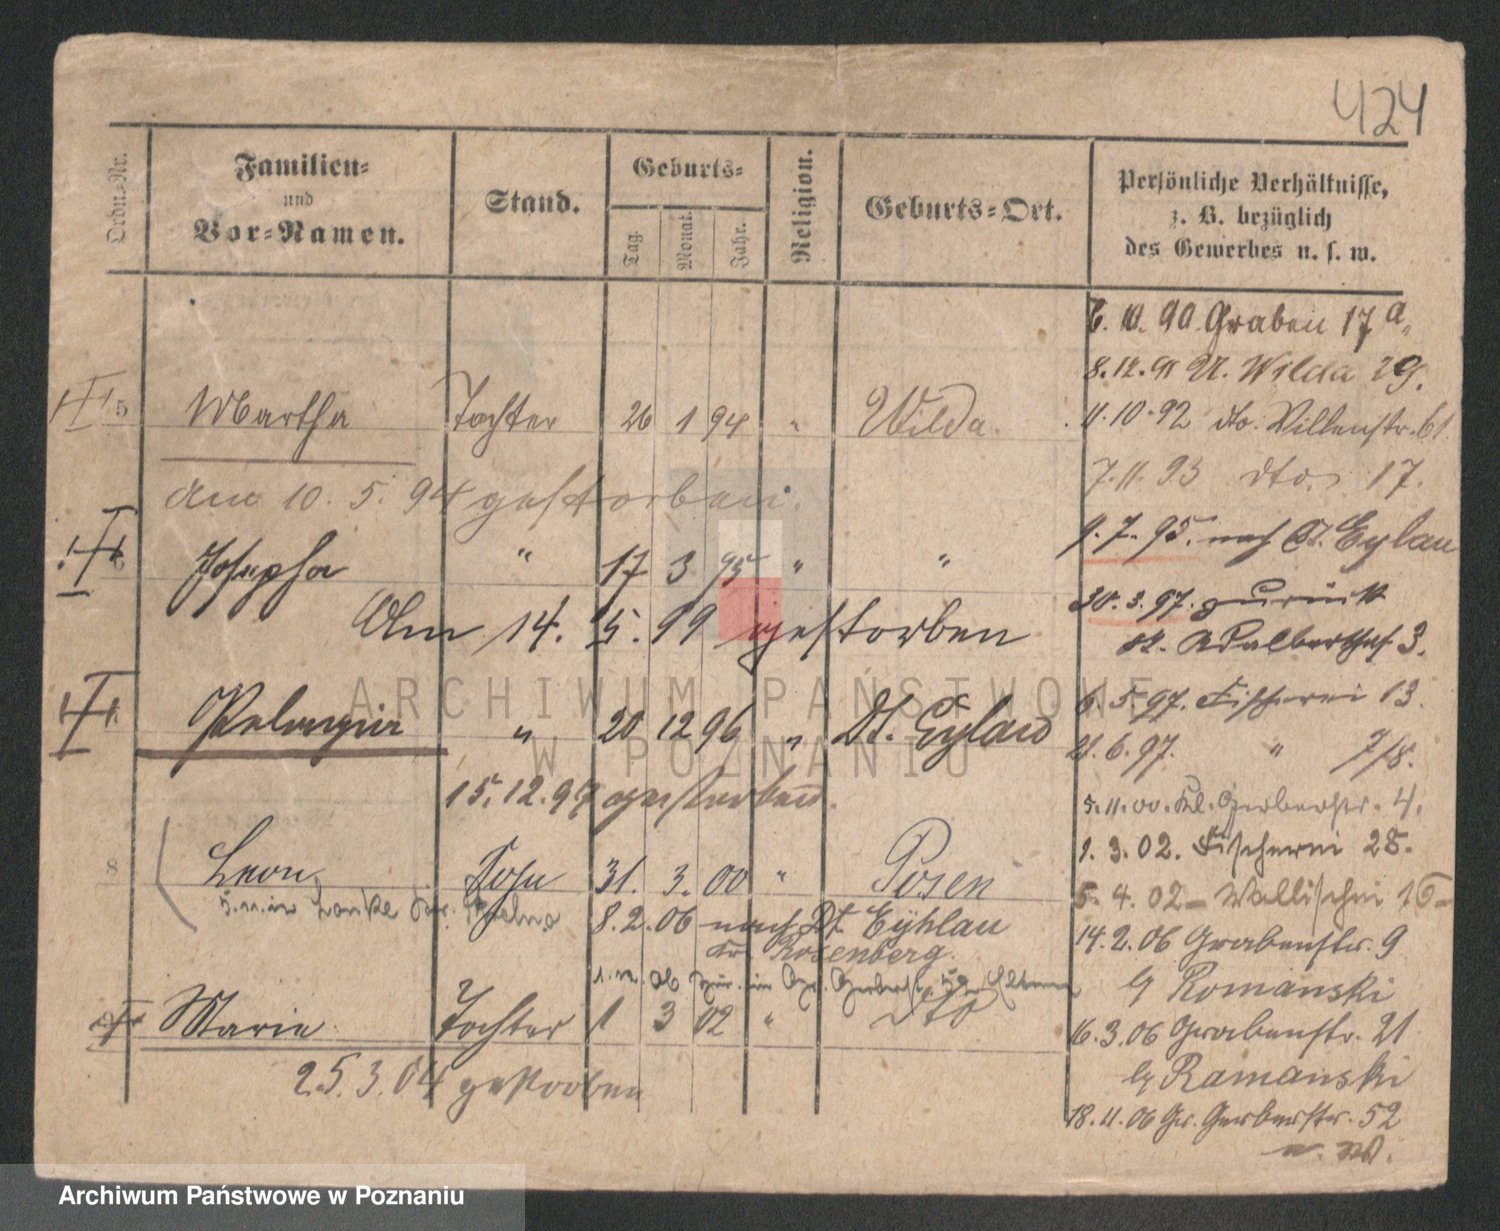 424
Ordn.-Nr.
Familien-
und
Vor-Namen.
Stand.
Geburts-
Tag.
Monat.
Jahr.
Religion.
Geburts-Ort.
Persönliche Verhältnisse,
z. B. bezüglich
des Gewerbes u. s. w.
6. 10. 90. Graben 17 a.
8.12.91 U. Wilda 29.
5 Martha Tochter 26 1 94 " Wilda.
11.10.92 dto. Villenstr. 61
7.11.93 dto. 17.
am 10. 5. 94 gestorben.
9.7.95. nach Dt. Eylau
6 Josepha " 17 3 95 " "
30.3.97. zurück
Am 14. 5. 99 gestorben
St. Adalbertstr. 3.
6.5.97. Fischerei 13.
Pelagia " 20 12 96 " Dt. Eylau
21.6.97. " 7/8.
15.12.97 gestorben.
5.11.00. Kl. Gerberstr. 4.
1. 3. 02. Fischerei 28.
8 Leon, Sohn 31. 3. 00 " Posen
5. 4. 02 Wallischei
8.2.06 nach Dt. Eyhlau
Kr. Rosenberg.
14.2.06 Grabenstr. 9
b/ Romanski
Marie Tochter 1 3 02 " dto
16.3.06 Grabenstr. 21
b/ Ramanski
25.3.04 gestorben
18.11.06 Gr. Gerberstr. 52
ARCHIWUM PAŃSTWOWE
W POZNANIU
Archiwum Państwowe w Poznaniu